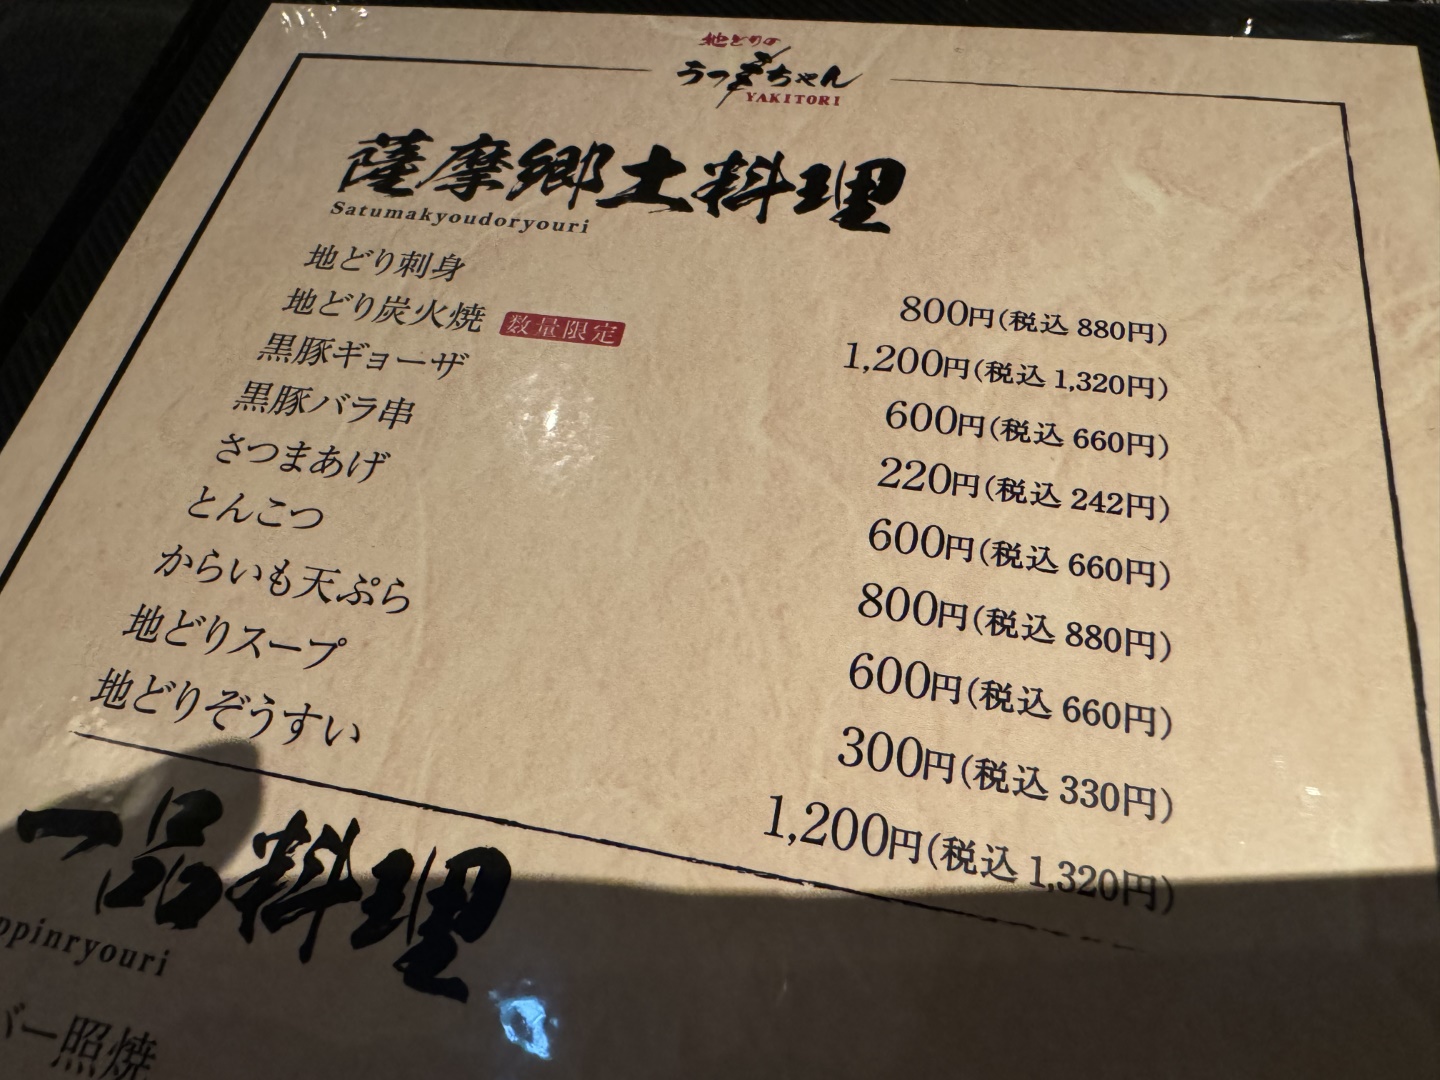 地どりの
うつ美ちゃん
YAKITORI
薩摩郷土料理
Satumakyoudoryouri
地どり刺身 800円(税込 880円)
地どり炭火焼 数量限定 1,200円(税込 1,320円)
黒豚ギョーザ 600円(税込 660円)
黒豚バラ串 220円(税込 242円)
さつまあげ 600円(税込 660円)
とんこつ 800円(税込 880円)
からいも天ぷら 600円(税込 660円)
地どりスープ 300円(税込 330円)
地どりぞうすい 1,200円(税込 1,320円)
一品料理
ppinryouri
バー照焼